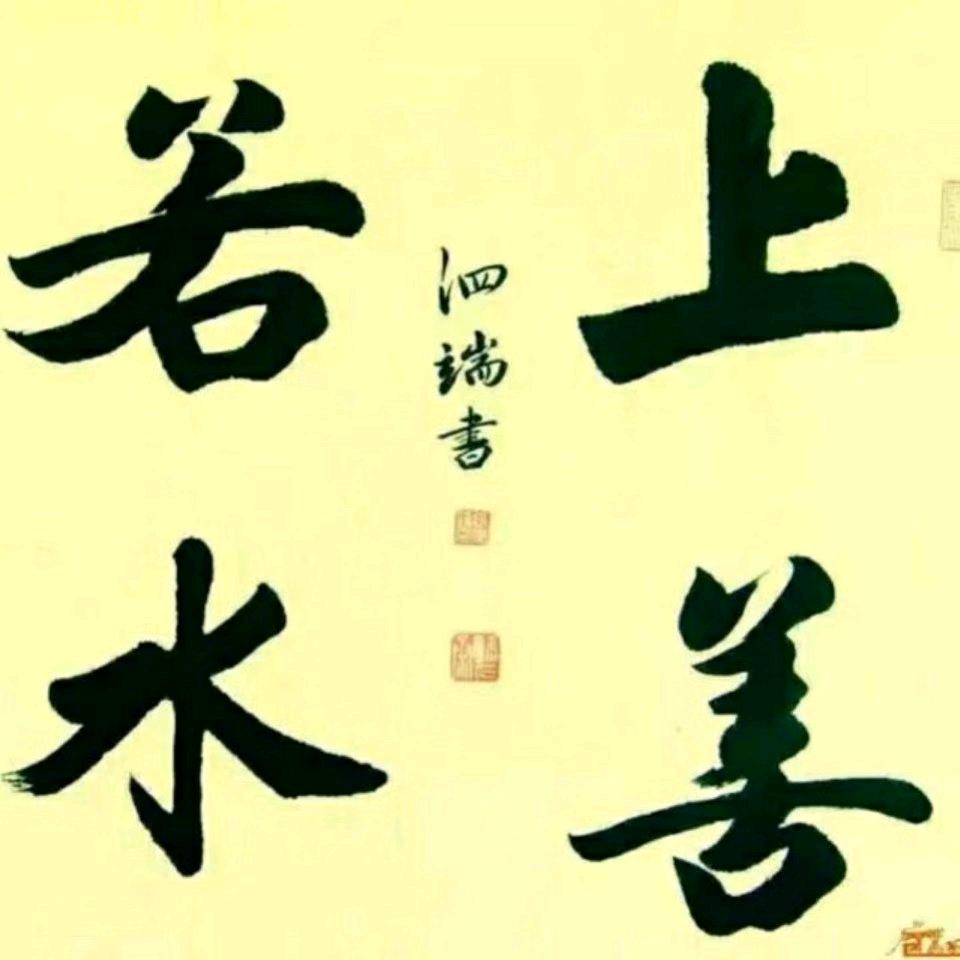 上善
若水
泗端书